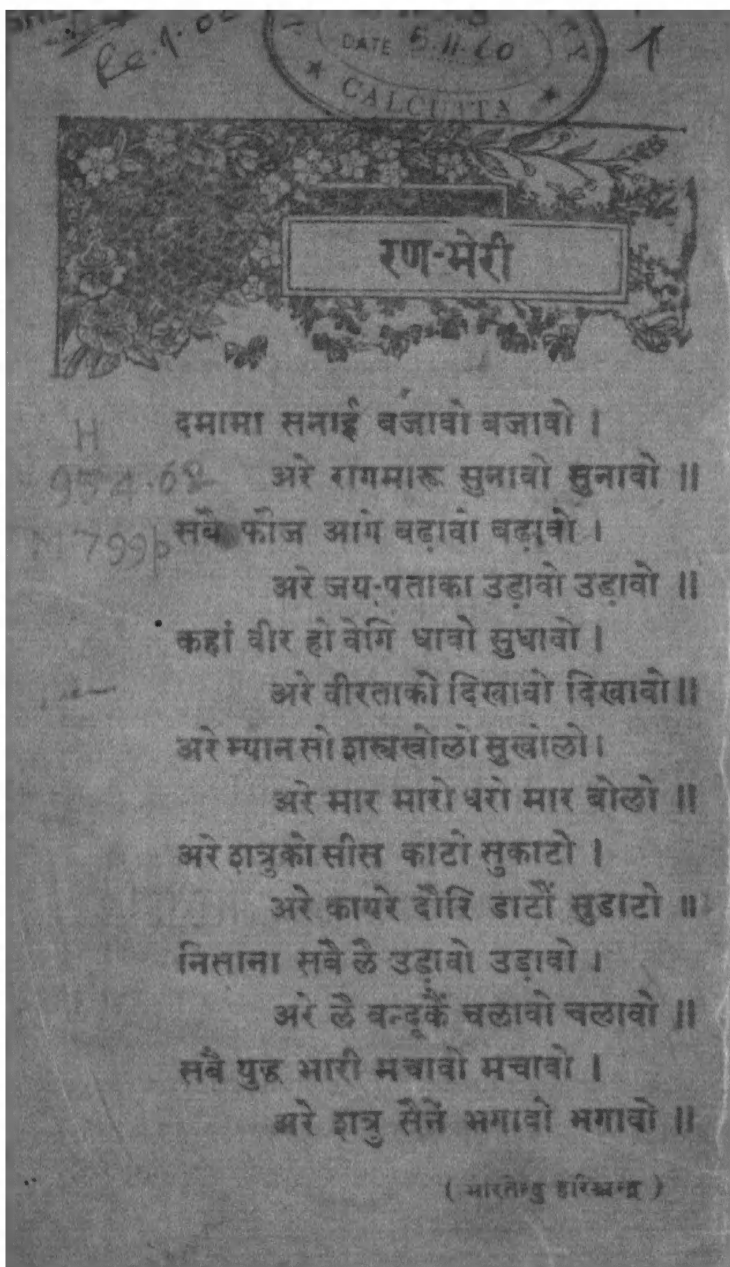 Re. 1. 0
DATE 5-11-60
CALCUTTA
रण-भेरी
दमामा सनाई बजावो बजावो ।
H
954.02
अरे रागमारू सुनावो सुनावो ॥
M799p
सबै फौज आगे बढ़ावो बढ़ावो ।
अरे जय-पताका उड़ावो उड़ावो ॥
कहां वीर हो वेगि धावो सुधावो ।
अरे वीरताको दिखावो दिखावो॥
अरे म्यान सो शस्त्रखोलो सुखोलो।
अरे मार मारो धरो मार बोलो ॥
अरे शत्रुको सीस काटो सुकाटो ।
अरे कायरे दौरि डाटौं सुडाटो ॥
निसाना सबै लै उड़ावो उड़ावो ।
अरे लै बन्दूकैं चलावो चलावो ॥
सबै युद्ध भारी मचावो मचावो ।
अरे शत्रु सैनें भगावो भगावो ॥
( भारतेन्दु हरिश्चन्द्र )